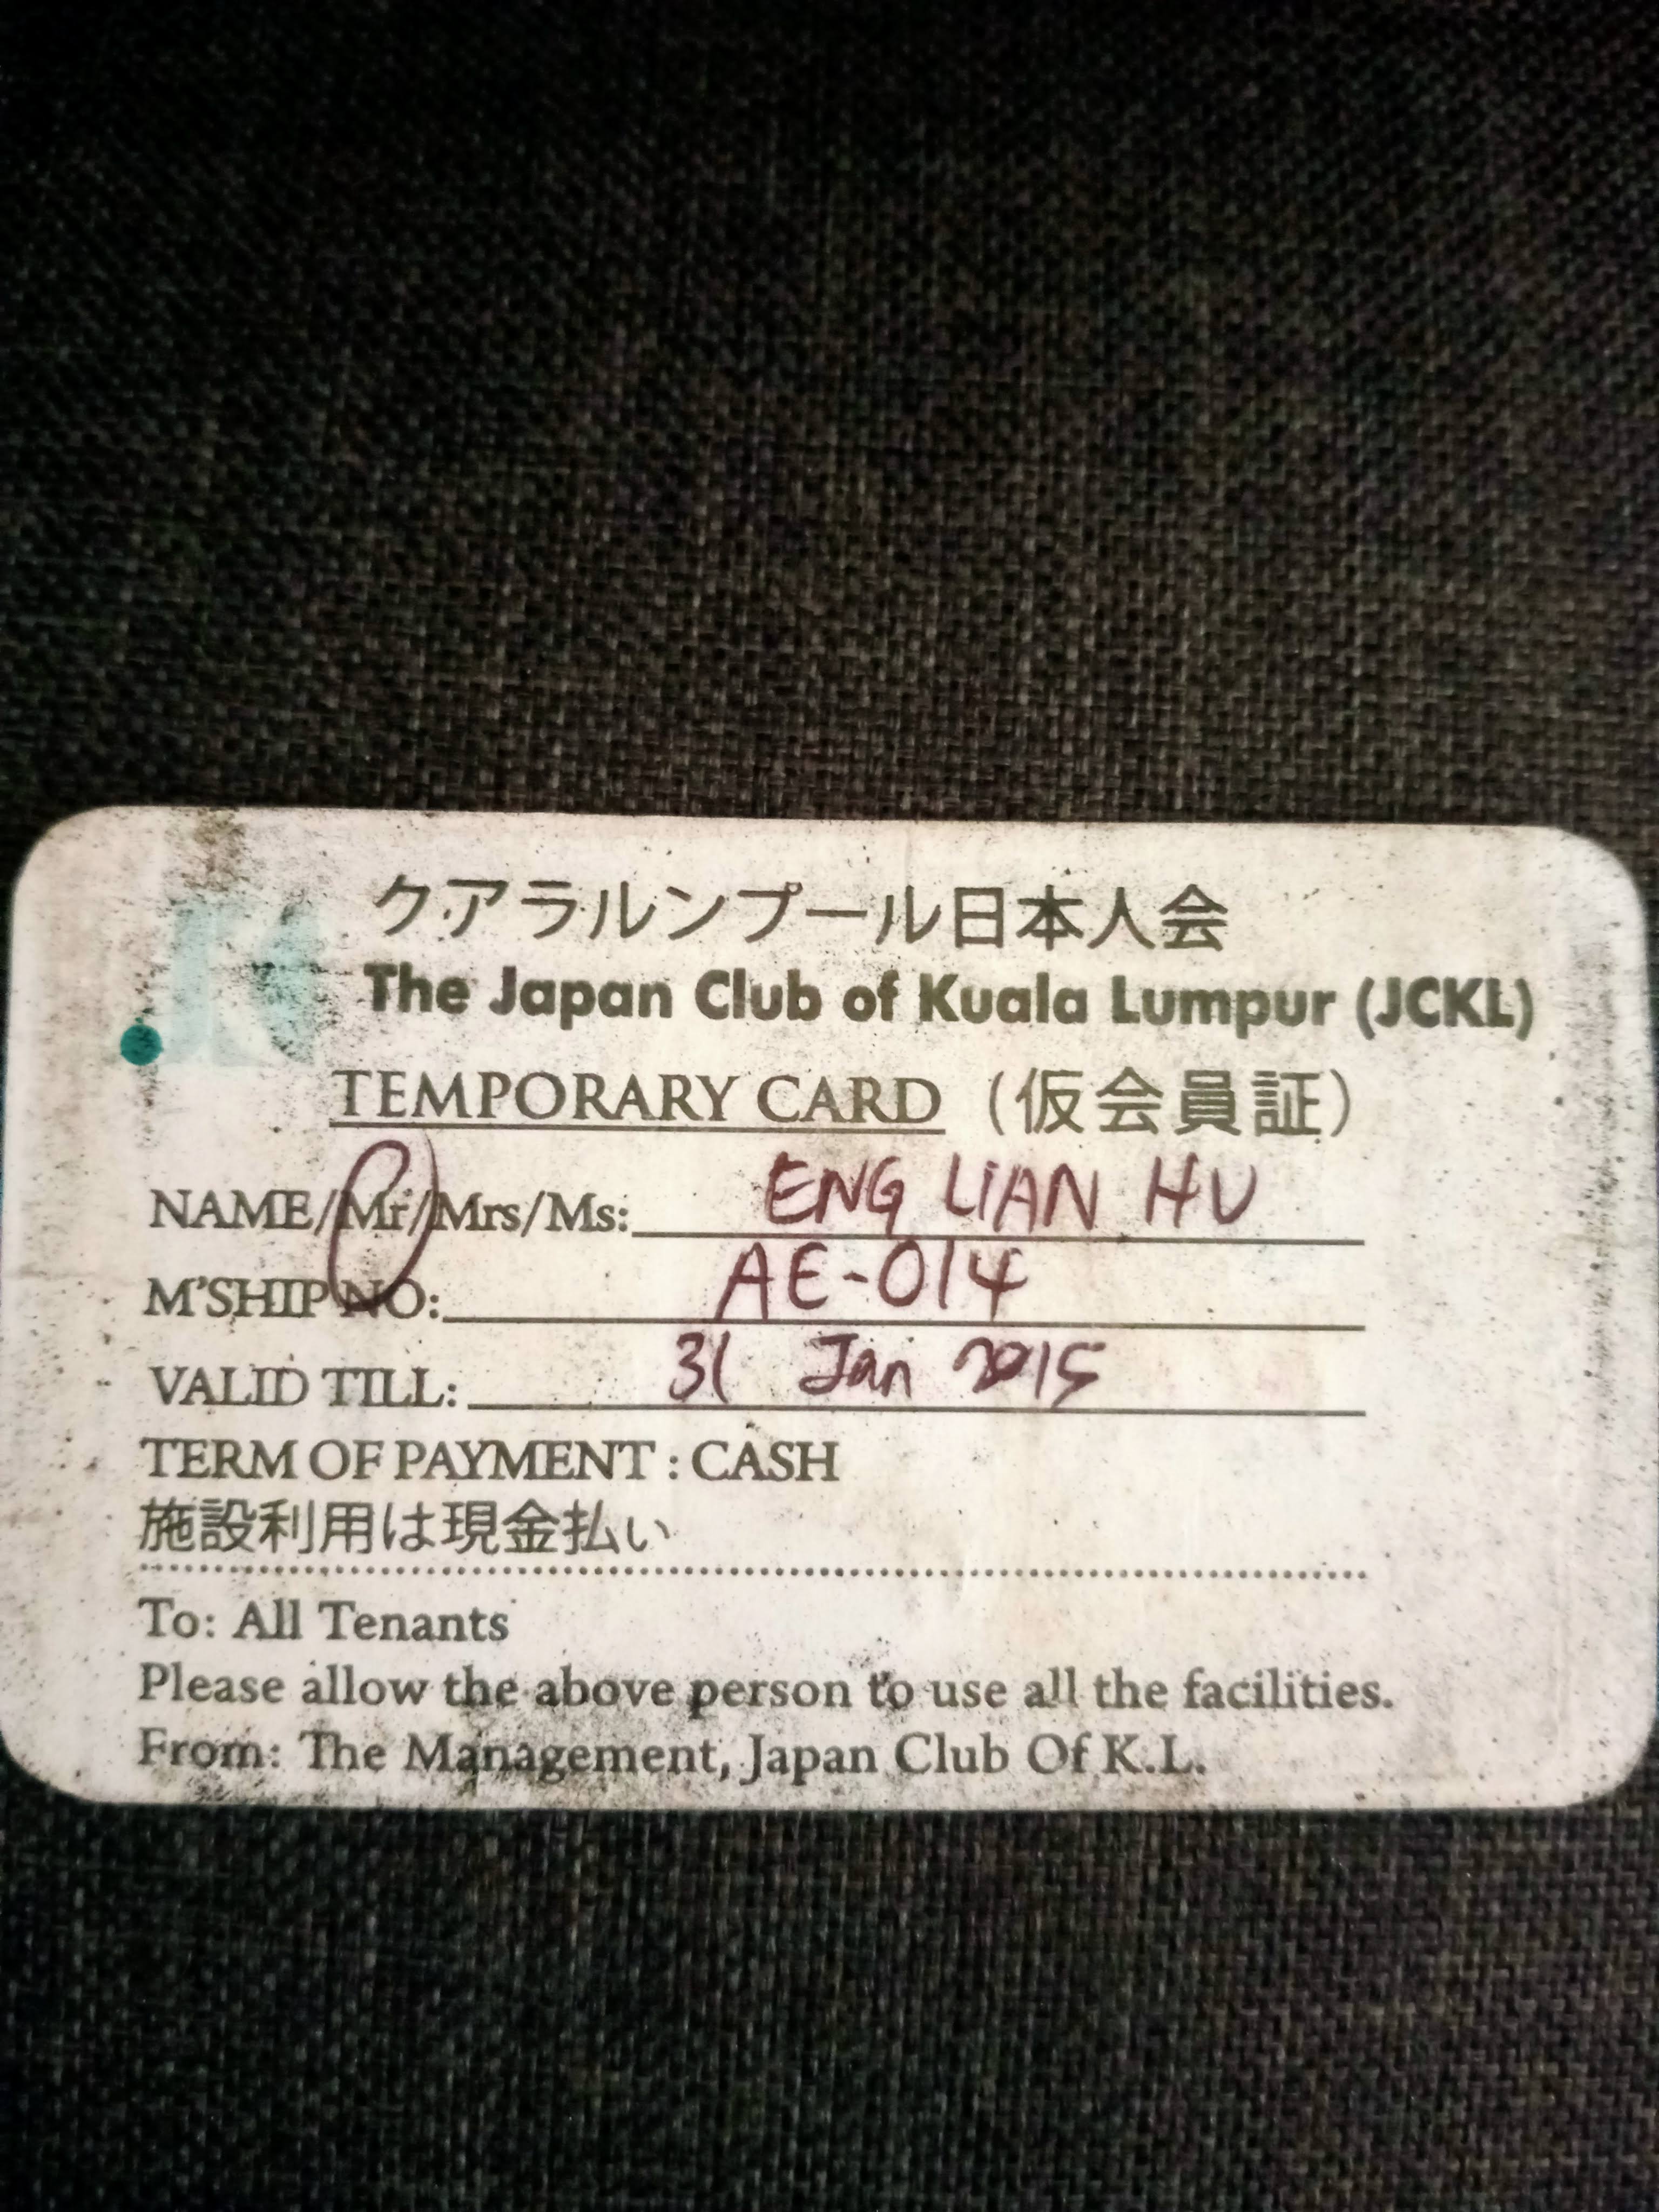 クアラルンプール日本人会
The Japan Club of Kuala Lumpur (JCKL)
TEMPORARY CARD (仮会員証)
NAME/Mr/Mrs/Ms: ENG LIAN HU
M'SHIP NO: AE-014
VALID TILL: 31 Jan 2015
TERM OF PAYMENT : CASH
施設利用は現金払い
To: All Tenants
Please allow the above person to use all the facilities.
From: The Management, Japan Club Of K.L.